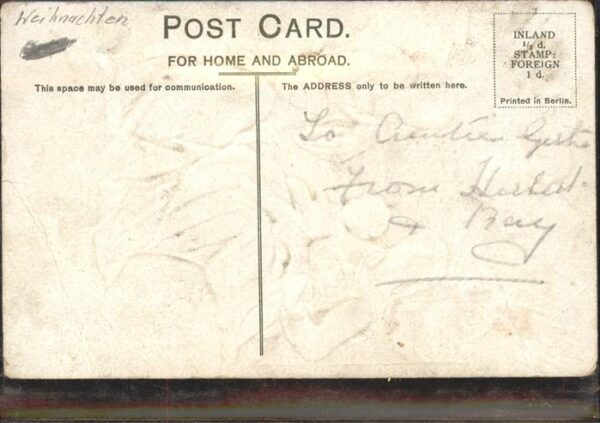 Weihnachten
POST CARD.
FOR HOME AND ABROAD.
This space may be used for communication.
The ADDRESS only to be written here.
INLAND
½ d.
STAMP:
FOREIGN
1 d.
Printed in Berlin.
To Auntie
From Herbert
& Ray